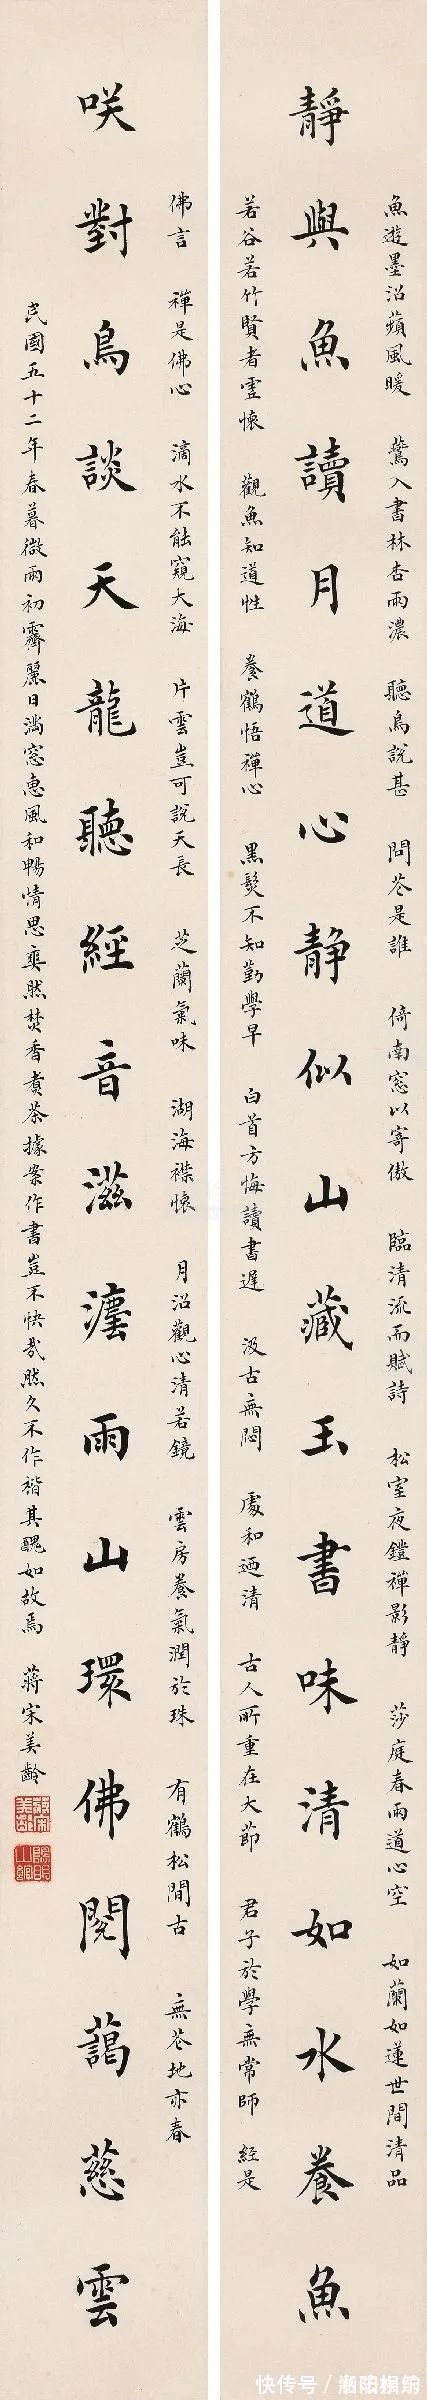 魚遊墨沼蘋風暖 鶯入書林杏雨濃 聽鳥說甚 問花是誰 倚南窓以寄傲 臨清流而賦詩 松室夜鐙禪影靜 莎庭春雨道心空 如蘭如蓮世間清品
靜與魚讀月道心静似山藏玉書味清如水養魚
若谷若竹賢者虛懷 觀魚知道性 養鶴悟禪心 黑髮不知勤學早 白首方悔讀書遲 汲古無悶 處和迺清 古人所重在大節 君子於學無常師 經是
佛言 禪是佛心 滴水不能窺大海 片雲豈可說天長 芝蘭氣味 湖海襟懷 月沼觀心清若鏡 雲房養氣潤於珠 有鶴松間古 無花地亦春
咲對鳥談天龍聽經音滋灋雨山環佛閣藹慈雲
民國五十二年春暮微雨初霽麗日滿窓惠風和暢情思奭然焚香煮茶據案作書豈不快哉然久不作楷其醜如故焉 蔣宋美齡
蔣宋美齡
快传号/